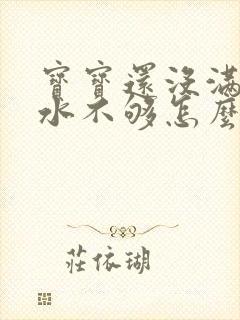 寶寶還沒滿
水不够怎麼
莊依瑚